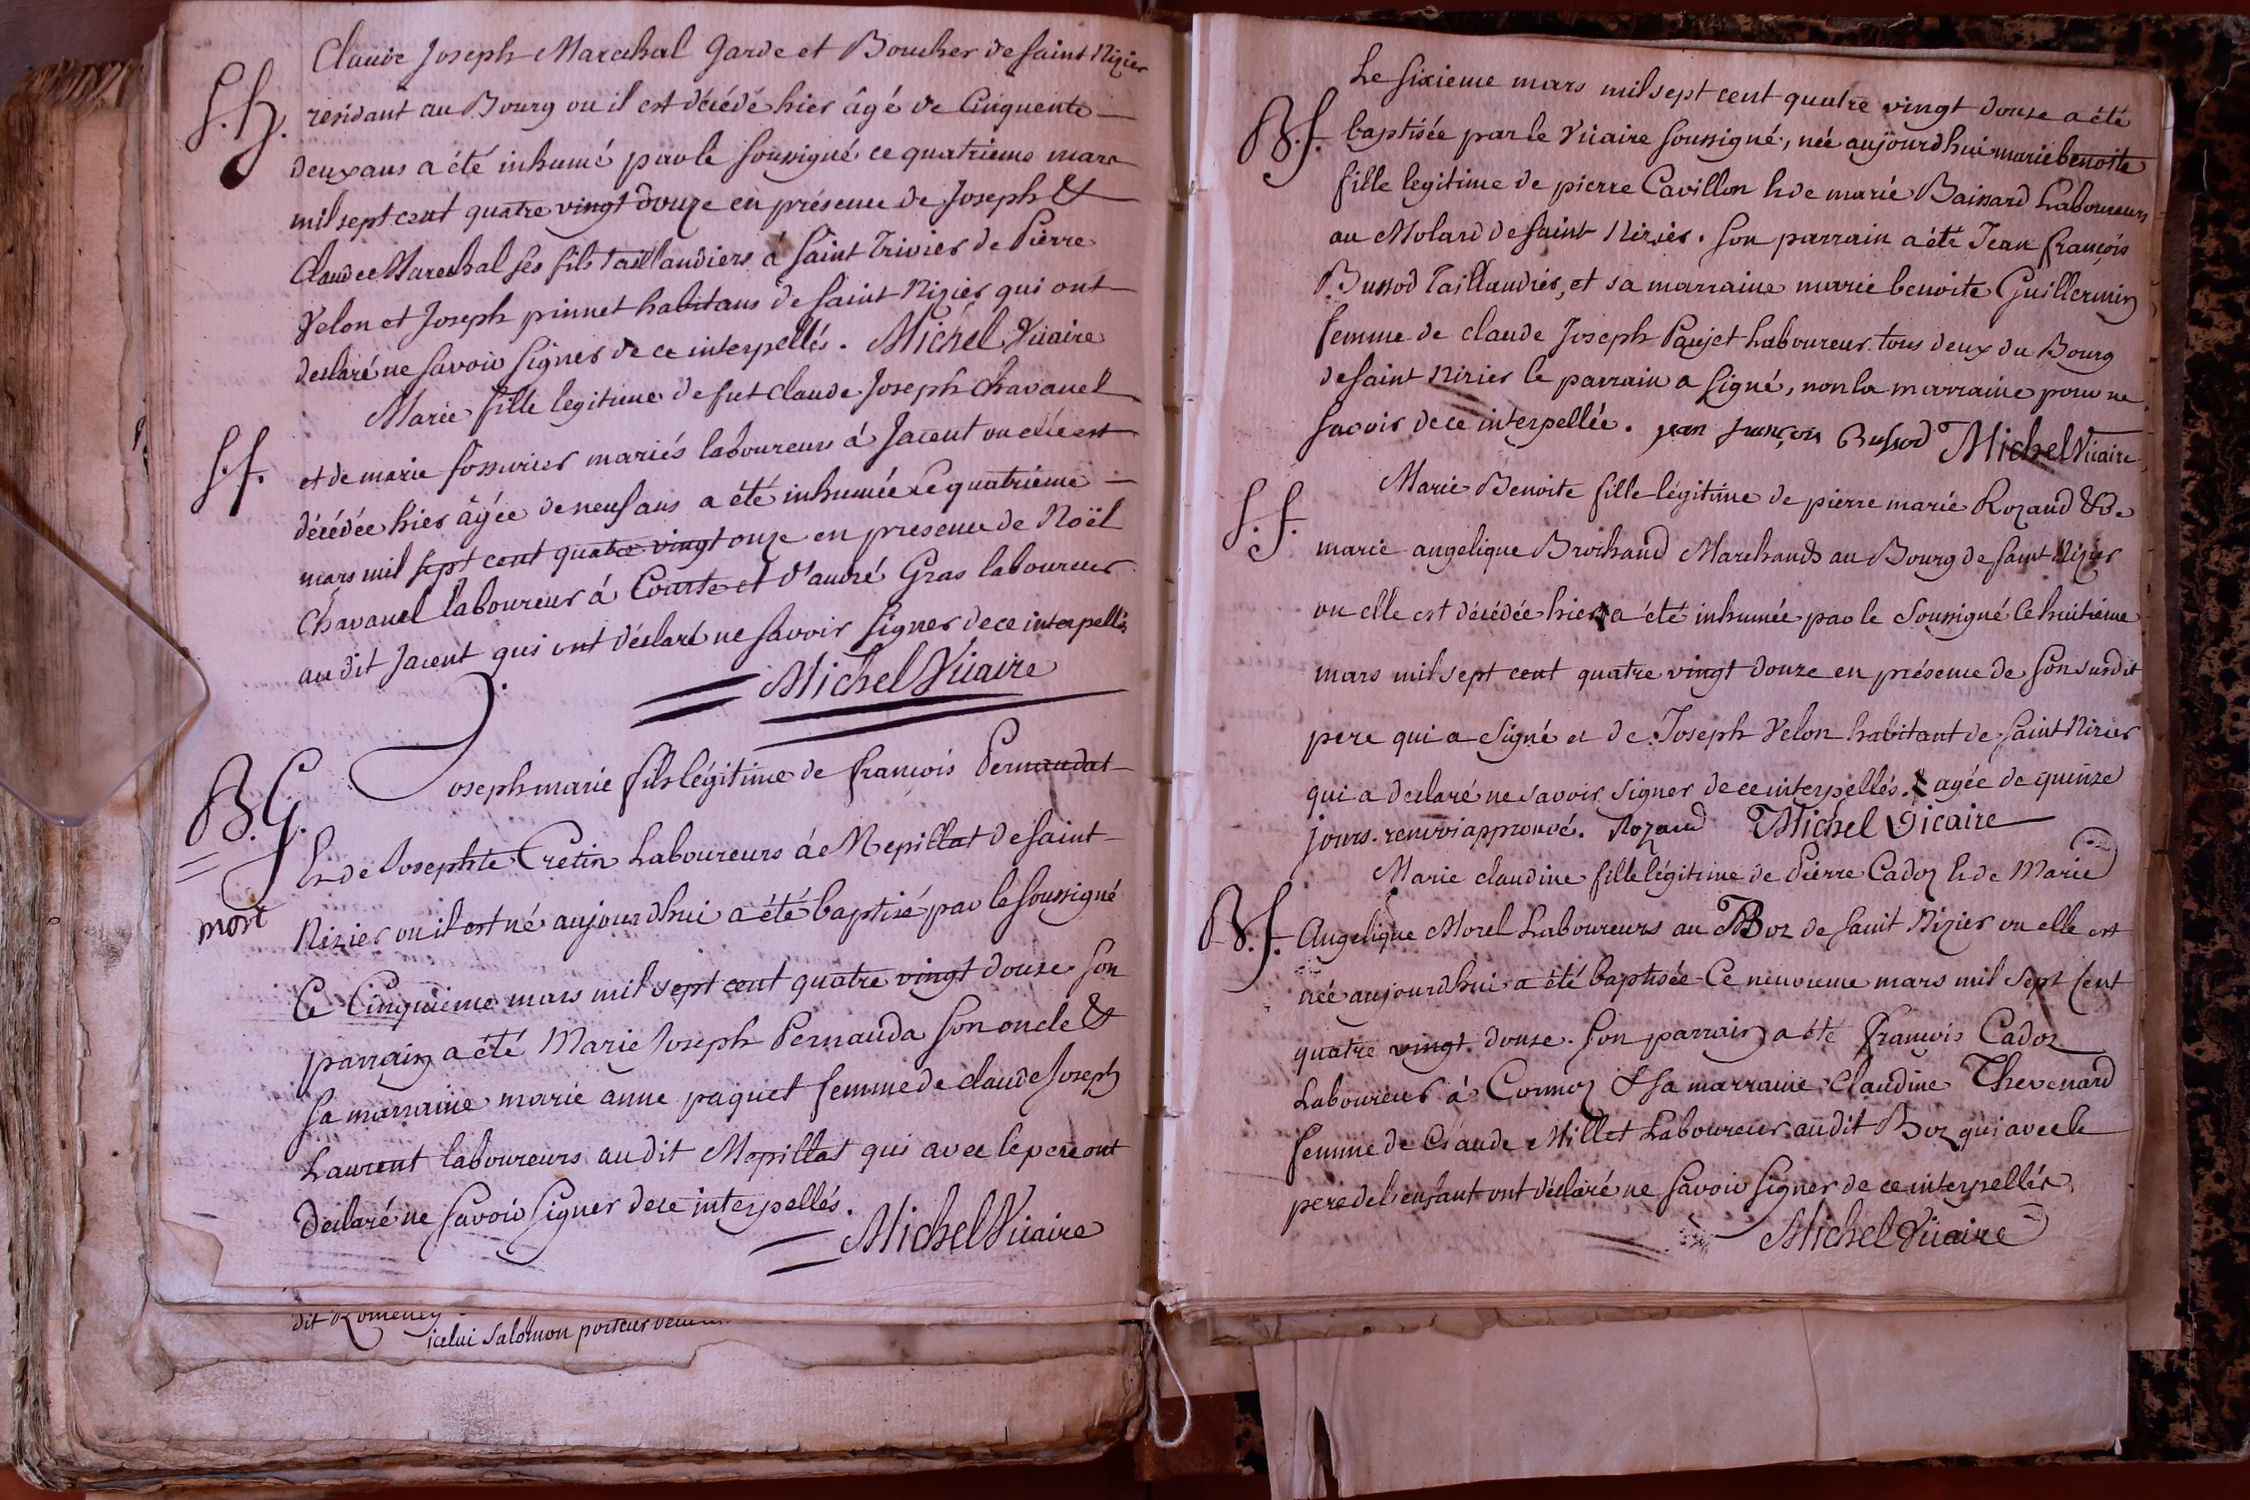 Claude Joseph Marechal Garde et Boucher de saint Nizier
S.h. residant au Bourg ou il est décédé hier âgé de Cinquente
deux ans a été inhumé par le soussigné ce quatrieme mars
mil sept cent quatre vingt douze en présence de Joseph &
Claude Marechal ses fils taillandiers á saint Trivier de Pierre
Velon et Joseph pinnet habitans de saint Nizier qui ont
declaré ne savoir signer de ce interpellés. Michel Vicaire
Marie fille legitime de fut Claude Joseph Chavanel
S.f. et de marie fossurier mariés laboureurs á Jacent ou elle est
décédée hier âgée de neuf ans a été inhumée le quatrieme
mars mil sept cent quatre vingt onze en presence de Noël
Chavanel laboureur á Courte et d'andré Gras laboureur
au dit Jacent qui ont déclaré ne savoir signer de ce interpellés
Michel Vicaire
B.G. Joseph marie fils légitime de francois Pernaudat
& de Josephte Cretin Laboureurs á Mepillat de saint
mort
Nizier ou il est né aujourdhui a été baptisé par le soussigné
Ce Cinquieme mars mil sept cent quatre vingt douze son
parrain a été Marie Joseph Pernauda son oncle &
sa marraine marie anne paquet femme de claude Joseph
Laurent laboureurs audit Mepillat qui avec le pere ont
declaré ne savoir signer de ce interpellés.
Michel Vicaire
dit Romeney
icelui Salomon porteur
Le sixieme mars mil sept cent quatre vingt douze a été
B.f. baptisée par le Vicaire soussigné, née aujourdhui marie benoite
fille legitime de pierre Cavillon & de marie Baissard Laboureurs
au Molard de saint Nizier. son parrain a été Jean françois
Bussod Taillandier, et sa marraine marie benoite Guillermin
femme de claude Joseph Paujet Laboureur tous deux du Bourg
de saint Nizier le parrain a signé, non la marraine pour ne
savoir de ce interpellée. jean françois Bussod Michel Vicaire
Marie Benoite fille légitime de pierre marie Rozand & de
S.f. marie angelique Brochand Marchands au Bourg de saint Nizier
ou elle est décédée hier a été inhumée par le soussigné Ce huitieme
mars mil sept cent quatre vingt douze en présence de son susdit
pere qui a signé et de Joseph Velon habitant de saint Nizier
qui a declaré ne savoir signer de ce interpellés. agée de quinze
jours. renvoi approuvé. Rozand Michel Vicaire
Marie claudine fille légitime de Pierre Cadoz & de Marie
B.f. Angelique Morel Laboureurs au Boz de saint Nizier ou elle est
née aujourdhui a été baptisée Ce neuvieme mars mil sept cent
quatre vingt douze. son parrain a été françois Cadoz
Laboureur à Cormoz & sa marraine Claudine Thevenard
femme de Claude Millet Laboureur audit Boz qui avec le
pere de l'enfant ont déclaré ne savoir signer de ce interpellés
Michel Vicaire